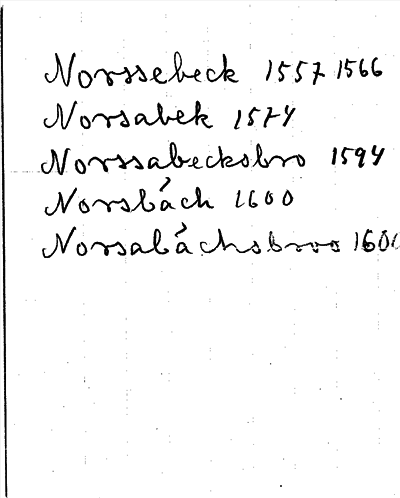 Norssebeck 1557 1566
Norsabek 1574
Norssabecksbro 1594
Norsbách 1600
Norsabáchsbroo